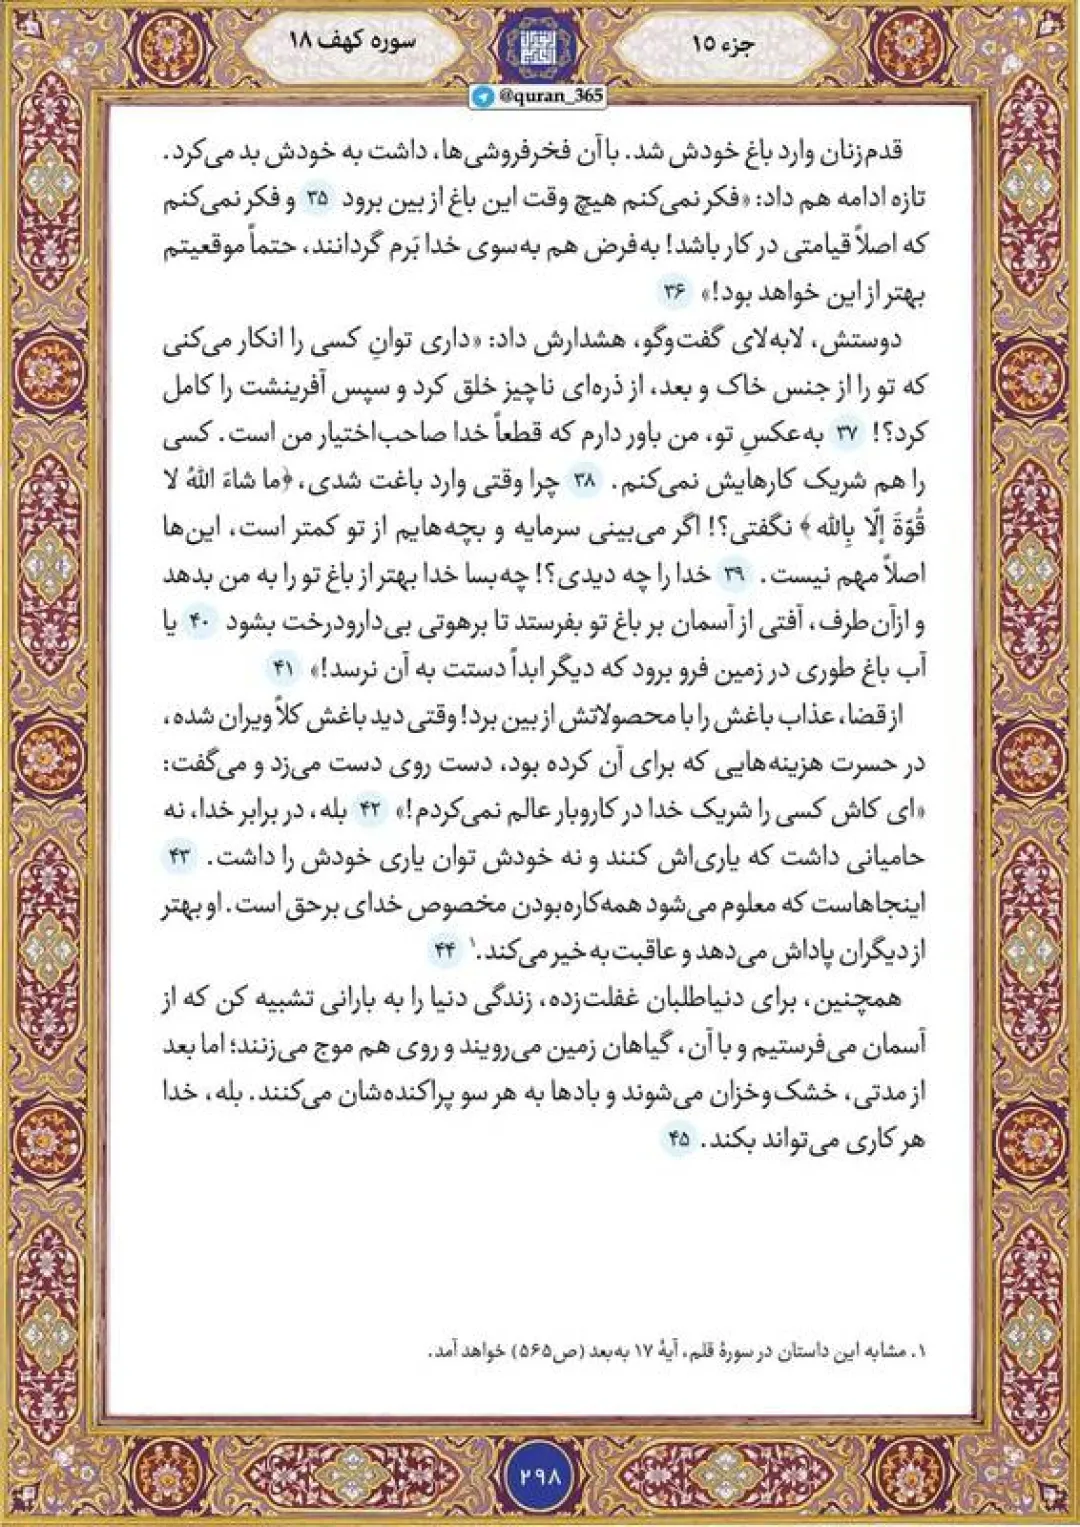 جزء ۱۵
سوره کهف ۱۸
@quran_365
قدم‌زنان وارد باغ خودش شد. با آن فخرفروشی‌ها، داشت به خودش بد می‌کرد.
تازه ادامه هم داد: «فکر نمی‌کنم هیچ وقت این باغ از بین برود ۳۵ و فکر نمی‌کنم
که اصلاً قیامتی در کار باشد! به‌فرض هم به‌سوی خدا بَرم گردانند، حتماً موقعیتم
بهتر از این خواهد بود!» ۳۶
دوستش، لابه‌لای گفت‌وگو، هشدارش داد: «داری توانِ کسی را انکار می‌کنی
که تو را از جنس خاک و بعد، از ذره‌ای ناچیز خلق کرد و سپس آفرینشت را کامل
کرد؟! ۳۷ به‌عکسِ تو، من باور دارم که قطعاً خدا صاحب‌اختیار من است. کسی
را هم شریک کارهایش نمی‌کنم. ۳۸ چرا وقتی وارد باغت شدی، ﴿ما شاءَ اللهُ لا
قُوَّةَ إلّا بِالله﴾ نگفتی؟! اگر می‌بینی سرمایه و بچه‌هایم از تو کمتر است، این‌ها
اصلاً مهم نیست. ۳۹ خدا را چه دیدی؟! چه‌بسا خدا بهتر از باغ تو را به من بدهد
و ازآن‌طرف، آفتی از آسمان بر باغ تو بفرستد تا برهوتی بی‌دارودرخت بشود ۴۰ یا
آب باغ طوری در زمین فرو برود که دیگر ابداً دستت به آن نرسد!» ۴۱
از قضا، عذاب باغش را با محصولاتش از بین برد! وقتی دید باغش کلاً ویران شده،
در حسرت هزینه‌هایی که برای آن کرده بود، دست روی دست می‌زد و می‌گفت:
«ای کاش کسی را شریک خدا در کاروبار عالم نمی‌کردم!» ۴۲ بله، در برابر خدا، نه
حامیانی داشت که یاری‌اش کنند و نه خودش توان یاری خودش را داشت. ۴۳
اینجاهاست که معلوم می‌شود همه‌کاره‌بودن مخصوص خدای برحق است. او بهتر
از دیگران پاداش می‌دهد و عاقبت‌به‌خیر می‌کند.۱ ۴۴
همچنین، برای دنیاطلبان غفلت‌زده، زندگی دنیا را به بارانی تشبیه کن که از
آسمان می‌فرستیم و با آن، گیاهان زمین می‌رویند و روی هم موج می‌زنند؛ اما بعد
از مدتی، خشک‌وخزان می‌شوند و بادها به هر سو پراکنده‌شان می‌کنند. بله، خدا
هر کاری می‌تواند بکند. ۴۵
۱. مشابه این داستان در سورهٔ قلم، آیهٔ ۱۷ به‌بعد (ص۵۶۵) خواهد آمد.
۲۹۸